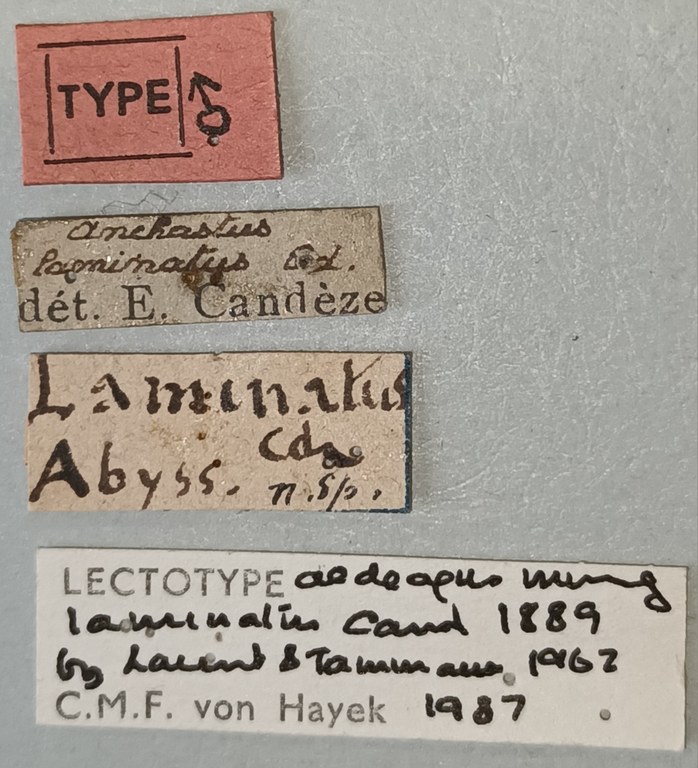 TYPE ♂
Anchastus
laminatus Cd.
dét. E. Candèze
Laminatus
Cdz
Abyss. n.sp.
LECTOTYPE
laminatus Cand 1889
by Laurent & Tamm 1962
C.M.F. von Hayek 1987